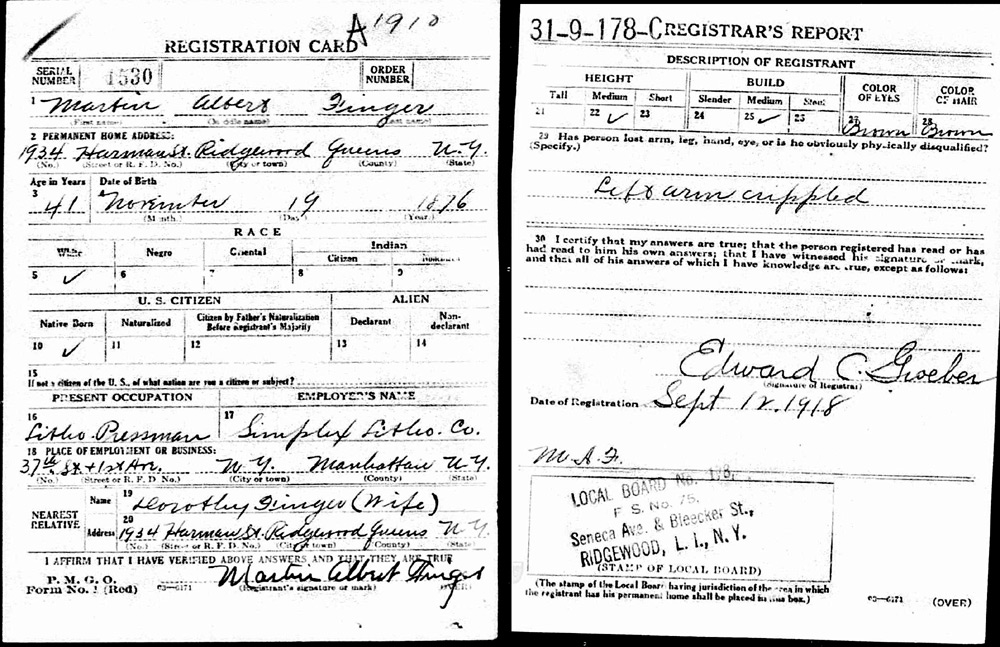 A1910
REGISTRATION CARD
SERIAL NUMBER 1530 ORDER NUMBER
1 Martin Albert Finger
(First name) (Middle name) (Last name)
2 PERMANENT HOME ADDRESS:
1934 Harman St. Ridgewood Queens N.Y.
(No.) (Street or R. F. D. No.) (City or town) (County) (State)
Age in Years Date of Birth
3 41 4 November 19 1876
(Month.) (Day.) (Year.)
RACE
White Negro Oriental Indian
Citizen Noncitizen
5 ✓ 6 7 8 9
U. S. CITIZEN ALIEN
Native Born Naturalized Citizen by Father's Naturalization Before Registrant's Majority Declarant Non-declarant
10 ✓ 11 12 13 14
15
If not a citizen of the U. S., of what nation are you a citizen or subject?
PRESENT OCCUPATION EMPLOYER'S NAME
16 Litho. Pressman 17 Simplex Litho. Co.
18 PLACE OF EMPLOYMENT OR BUSINESS:
37th St + 1st Ave. N.Y. Manhattan N.Y.
(No.) (Street or R. F. D. No.) (City or town) (County) (State)
NEAREST RELATIVE
Name 19 Dorothy Finger (Wife)
Address 20 1934 Harman St. Ridgewood Queens N.Y.
(No.) (Street or R. F. D. No.) (City or town) (County) (State)
I AFFIRM THAT I HAVE VERIFIED ABOVE ANSWERS AND THAT THEY ARE TRUE
P. M. G. O.
Form No. 1 (Red) 03—6171 Martin Albert Finger
(Registrant's signature or mark) (OVER)
31-9-178-C REGISTRAR'S REPORT
DESCRIPTION OF REGISTRANT
HEIGHT BUILD COLOR OF EYES COLOR OF HAIR
Tall Medium Short Slender Medium Stout
21 22 ✓ 23 24 25 ✓ 26 27 Brown 28 Brown
29 Has person lost arm, leg, hand, eye, or is he obviously physically disqualified?
(Specify.)
Left arm crippled
30 I certify that my answers are true; that the person registered has read or has
had read to him his own answers; that I have witnessed his signature or mark,
and that all of his answers of which I have knowledge are true, except as follows:
Edward C. Groeber
(Signature of Registrar)
Date of Registration Sept 12. 1918
M.A.F.
LOCAL BOARD No. 178,
F S. No. 75.
Seneca Ave. & Bleecker St.,
RIDGEWOOD, L. I., N. Y.
(STAMP OF LOCAL BOARD)
(The stamp of the Local Board having jurisdiction of the area in which
the registrant has his permanent home shall be placed in this box.)
03—6171 (OVER)